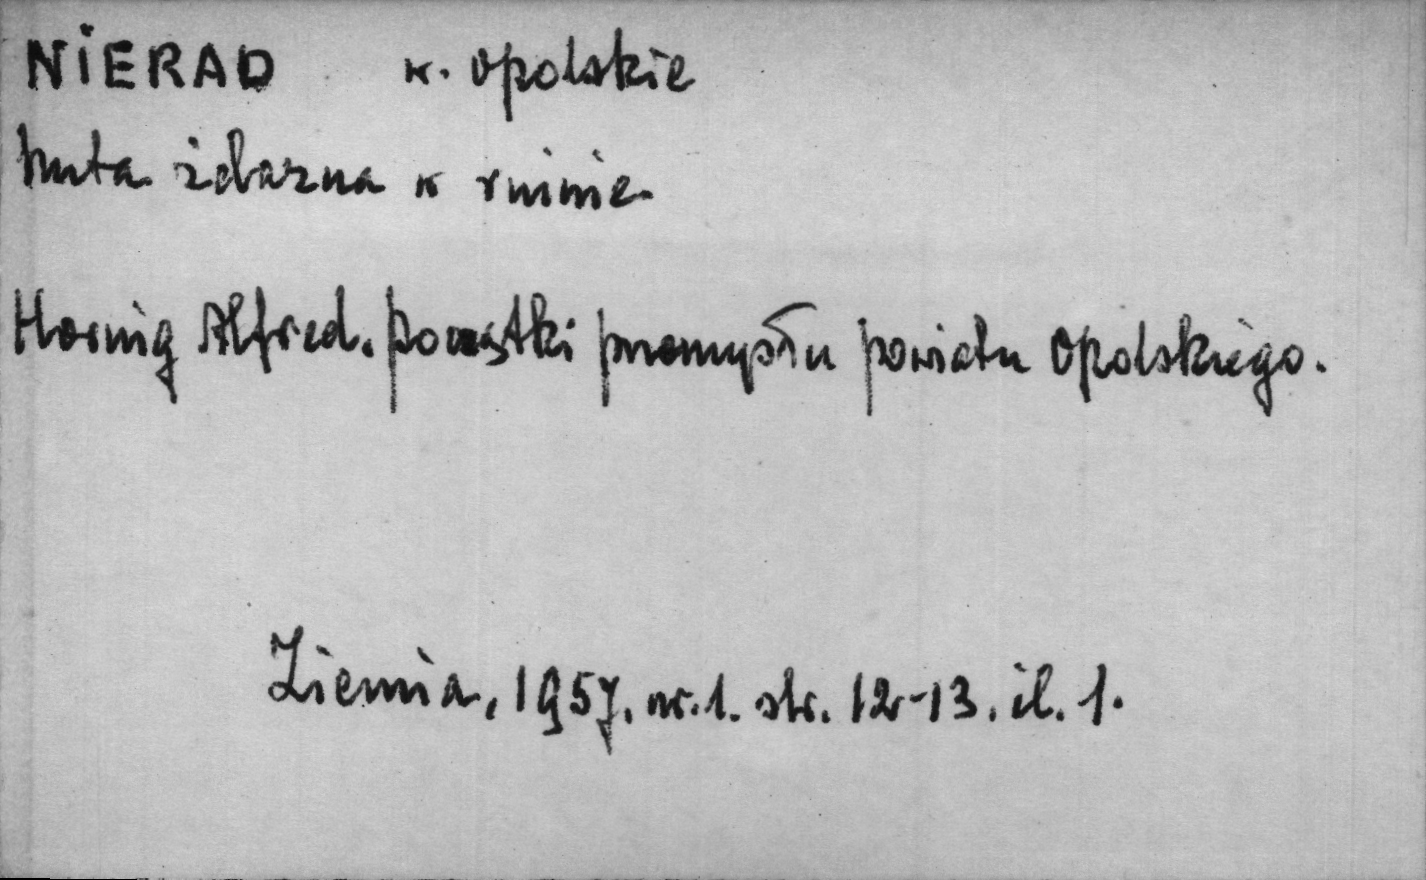 NIERAD w. opolskie
huta żelazna w ruinie.
Hornig Alfred. początki przemysłu powiatu Opolskiego.
Ziemia, 1957. nr. 1. str. 12-13. il. 1.